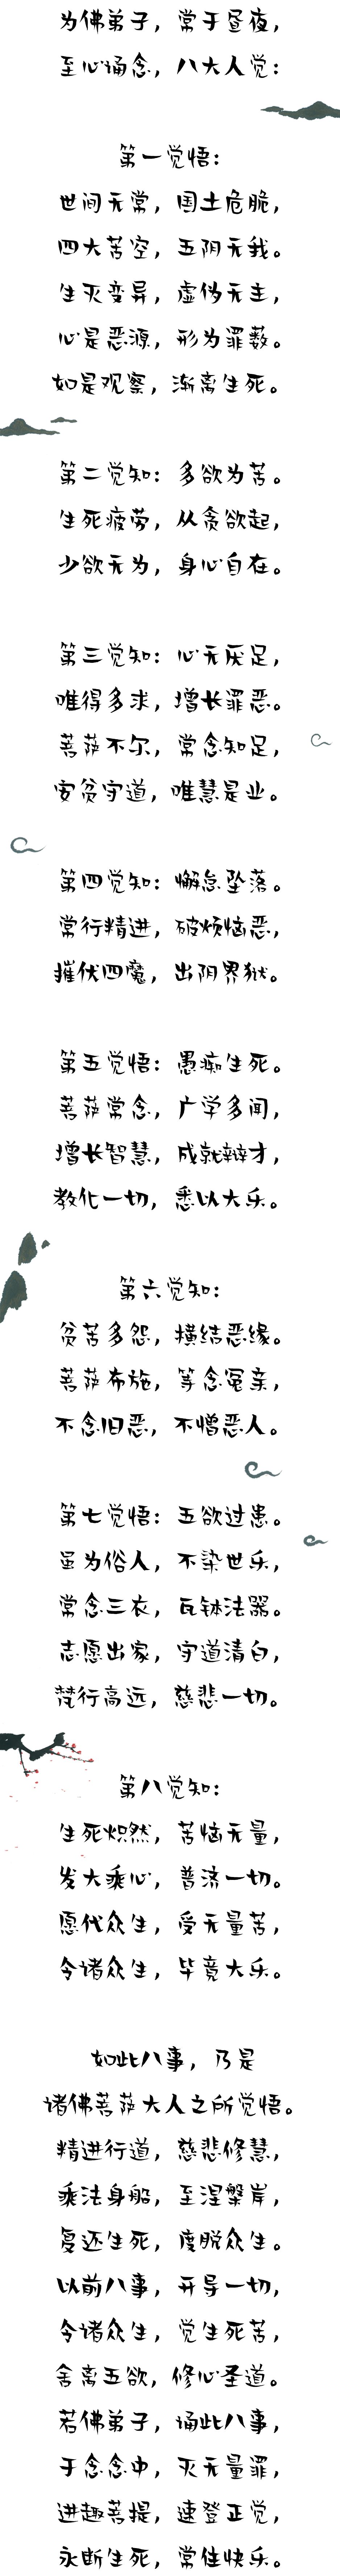 为佛弟子，常于昼夜，
至心诵念，八大人觉：
第一觉悟：
世间无常，国土危脆，
四大苦空，五阴无我。
生灭变异，虚伪无主，
心是恶源，形为罪薮。
如是观察，渐离生死。
第二觉知：多欲为苦。
生死疲劳，从贪欲起，
少欲无为，身心自在。
第三觉知：心无厌足，
唯得多求，增长罪恶。
菩萨不尔，常念知足，
安贫守道，唯慧是业。
第四觉知：懈怠坠落。
常行精进，破烦恼恶，
摧伏四魔，出阴界狱。
第五觉悟：愚痴生死。
菩萨常念，广学多闻，
增长智慧，成就辩才，
教化一切，悉以大乐。
第六觉知：
贫苦多怨，横结恶缘。
菩萨布施，等念冤亲，
不念旧恶，不憎恶人。
第七觉悟：五欲过患。
虽为俗人，不染世乐，
常念三衣，瓦钵法器。
志愿出家，守道清白，
梵行高远，慈悲一切。
第八觉知：
生死炽然，苦恼无量，
发大乘心，普济一切。
愿代众生，受无量苦，
令诸众生，毕竟大乐。
如此八事，乃是
诸佛菩萨大人之所觉悟。
精进行道，慈悲修慧，
乘法身船，至涅槃岸，
复还生死，度脱众生。
以前八事，开导一切，
令诸众生，觉生死苦，
舍离五欲，修心圣道。
若佛弟子，诵此八事，
于念念中，灭无量罪，
进趣菩提，速登正觉，
永断生死，常住快乐。